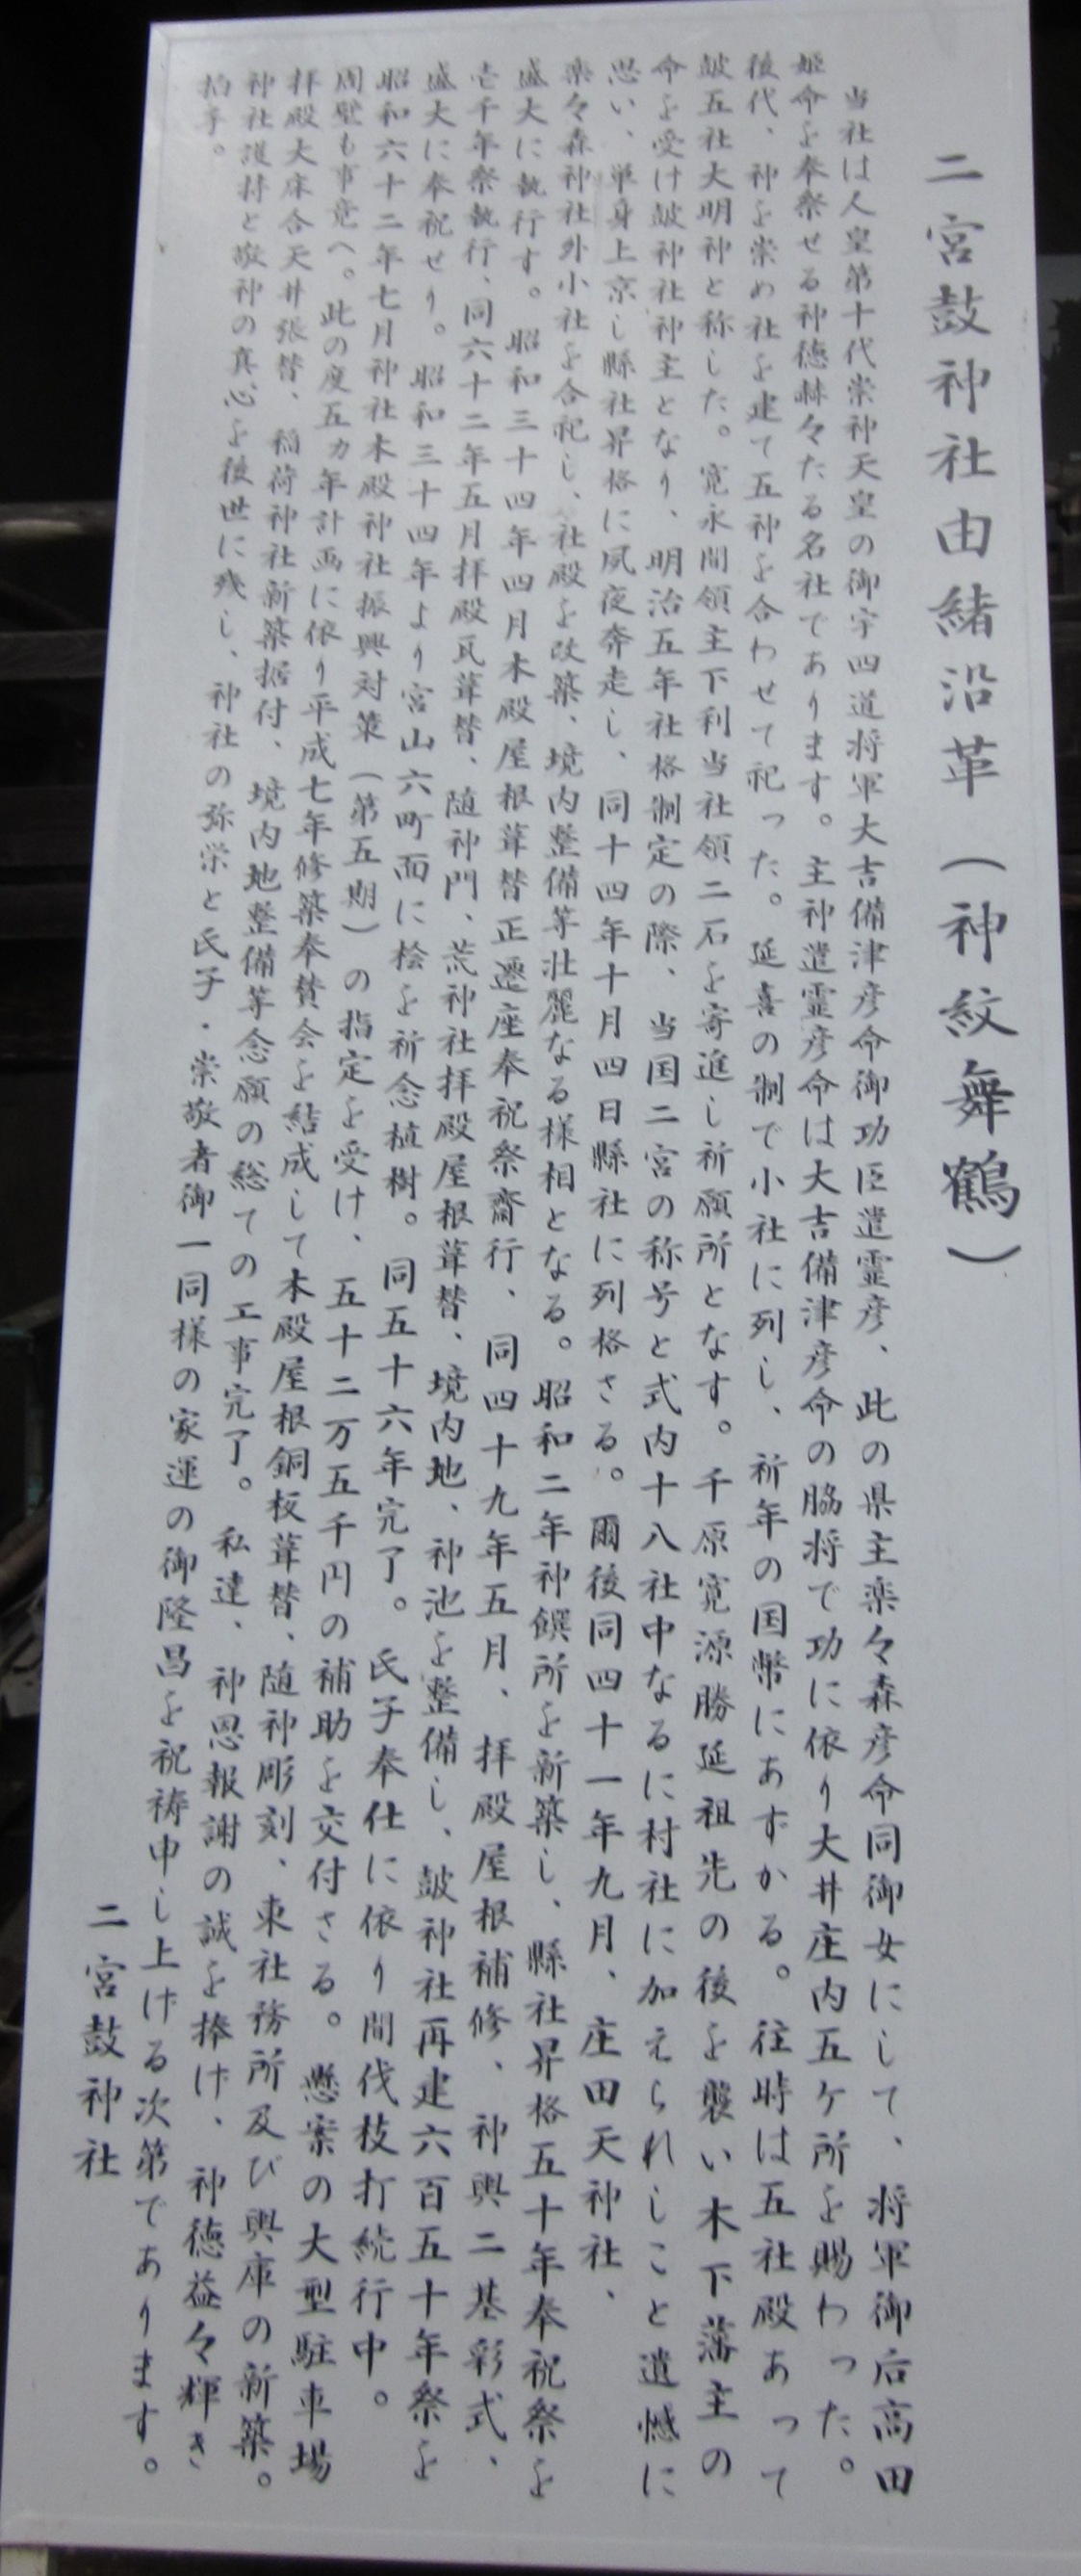 二宮鼓神社由緒沿革（神紋舞鶴）
当社は人皇第十代崇神天皇の御宇四道将軍大吉備津彦命御功臣遣霊彦、此の県主楽々森彦命同御女にして、将軍御后高田
姫命を奉祭せる神徳赫々たる名社であります。主神遣霊彦命は大吉備津彦命の脇将で功に依り大井庄内五ケ所を賜わった。
後代、神を崇め社を建て五神を合わせて祀った。延喜の制で小社に列し、祈年の国幣にあずかる。往時は五社殿あって
皷五社大明神と称した。寛永間領主下利当社領二石を寄進し祈願所となす。千原寛源勝延祖先の後を襲い木下藩主の
命を受け皷神社神主となり、明治五年社格制定の際、当国二宮の称号と式内十八社中なるに村社に加えられしこと遺憾に
思い、単身上京し縣社昇格に夙夜奔走し、同十四年十月四日縣社に列格さる。爾後同四十一年九月、庄田天神社、
楽々森神社外小社を合祀し、社殿を改築、境内整備等壮麗なる様相となる。昭和二年神饌所を新築し、縣社昇格五十年奉祝祭を
盛大に執行す。昭和三十四年四月本殿屋根葺替正遷座奉祝祭齋行、同四十九年五月、拝殿屋根補修、神輿二基彩式、
壱千年祭執行、同六十二年五月拝殿瓦葺替、随神門、荒神社拝殿屋根葺替、境内地、神池を整備し、皷神社再建六百五十年祭を
盛大に奉祝せり。昭和三十四年より宮山六町面に桧を祈念植樹。同五十六年完了。氏子奉仕に依り間伐枝打続行中。
昭和六十二年七月神社本殿神社振興対策（第五期）の指定を受け、五十二万五千円の補助を交付さる。懸案の大型駐車場
周壁も事竟へ。此の度五カ年計画に依り平成七年修築奉賛会を結成して本殿屋根銅板葺替、随神彫刻、東社務所及び輿庫の新築。
拝殿大床合天井張替、稲荷神社新築据付、境内地整備等念願の総ての工事完了。私達、神恩報謝の誠を捧げ、神徳益々輝き
神社護持と敬神の真心を後世に残し、神社の弥栄と氏子・崇敬者御一同様の家運の御隆昌を祝祷申し上げる次第であります。
拍手。
二宮鼓神社